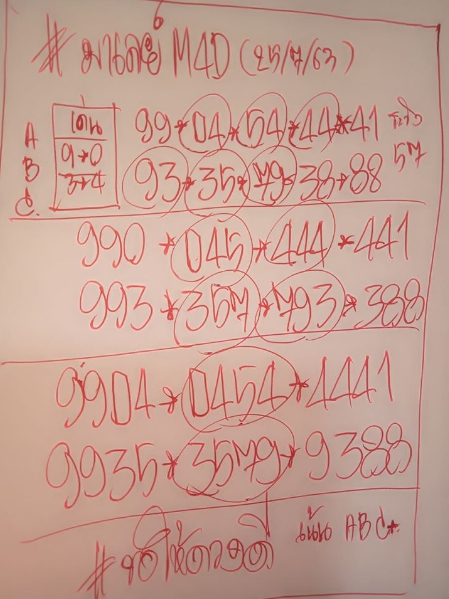 # มาเลย์ M4D (25/7/63)
A
B
C.
เด่น
9→0
3→4
99*04*54*44*41 ระวัง
93*35*79*38*88 57
990*045*444*441
993*357*793*388
9904*0454*4441
9935*3579*9388
#ขอให้ดวงดี เน้น ABC*